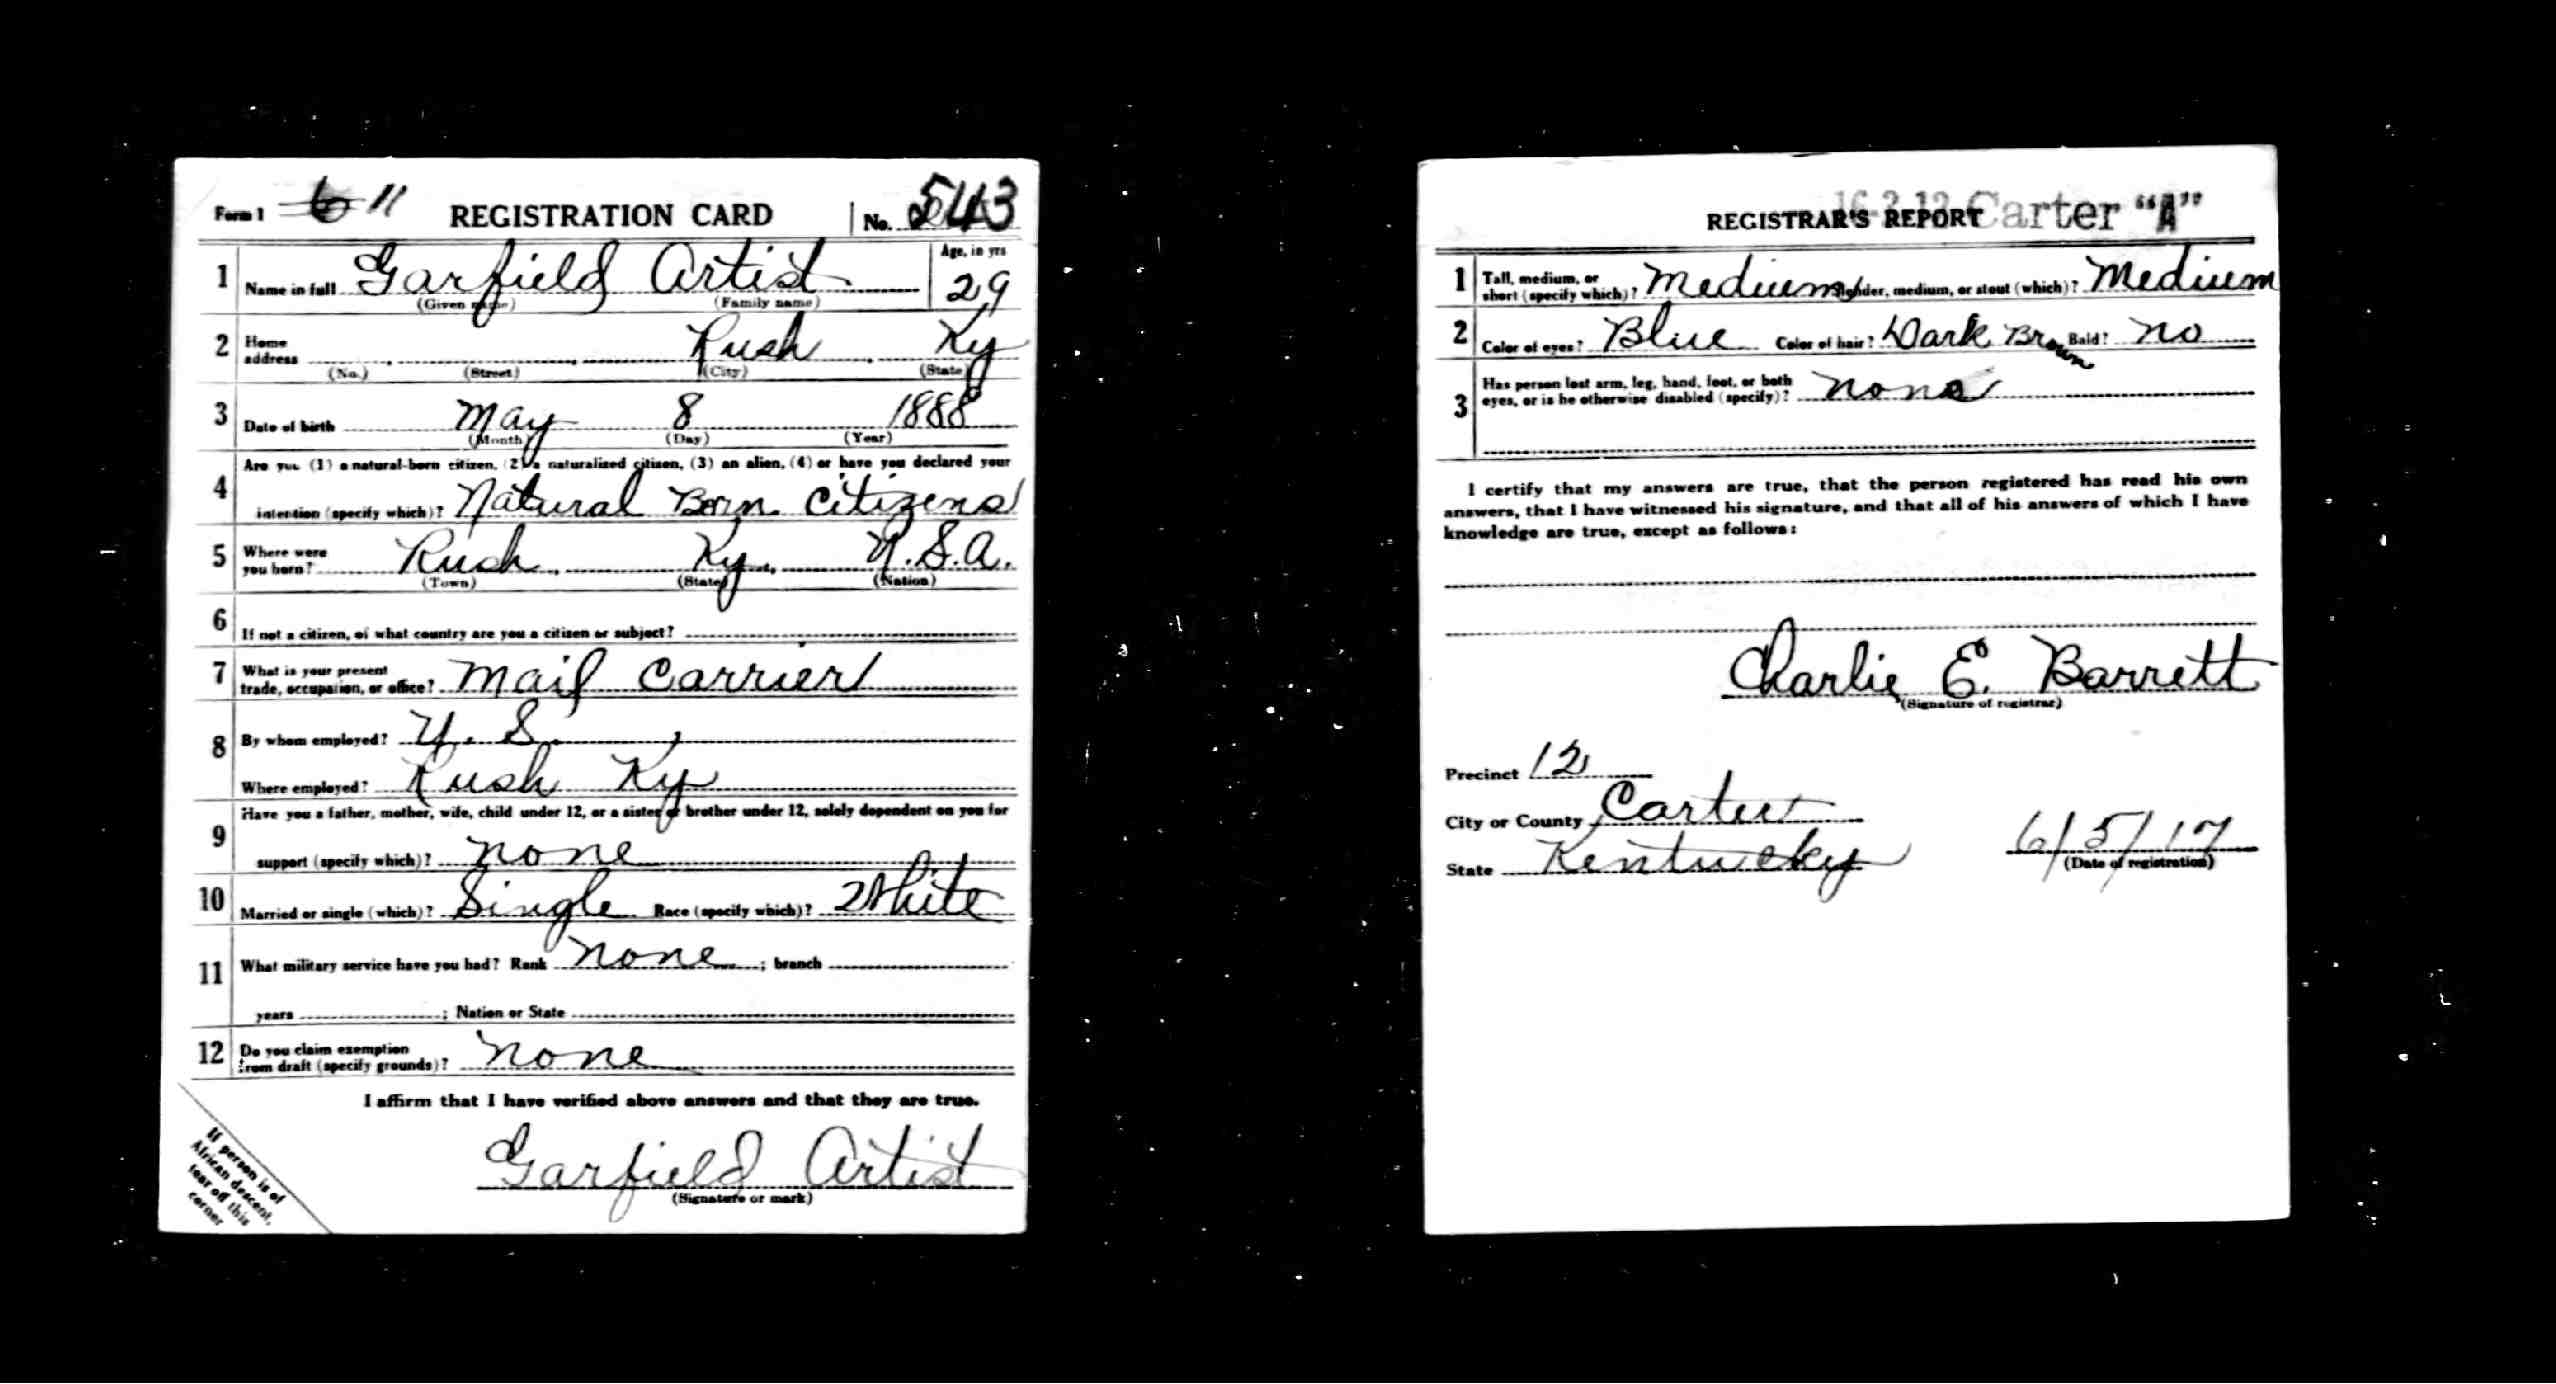 Form 1 6 11 REGISTRATION CARD No. 543
1 Name in full Garfield Artist Age, in yrs 29
(Given name) (Family name)
2 Home address Rush Ky
(No.) (Street) (City) (State)
3 Date of birth May 8 1888
(Month) (Day) (Year)
Are you (1) a natural-born citizen, (2) a naturalized citizen, (3) an alien, (4) or have you declared your
4 intention (specify which)? Natural Born Citizens
5 Where were you born? Rush Ky U.S.A.
(Town) (State) (Nation)
6 If not a citizen, of what country are you a citizen or subject?
7 What is your present trade, occupation, or office? Mail Carrier
8 By whom employed? U. S.
Where employed? Rush Ky
Have you a father, mother, wife, child under 12, or a sister or brother under 12, solely dependent on you for
9 support (specify which)? None
10 Married or single (which)? Single Race (specify which)? White
11 What military service have you had? Rank None ; branch
years ; Nation or State
12 Do you claim exemption from draft (specify grounds)? None
I affirm that I have verified above answers and that they are true.
Garfield Artist
(Signature or mark)
If person is of
African descent,
tear off this
corner
16-2-12 Carter "A"
REGISTRAR'S REPORT
1 Tall, medium, or short (specify which)? Medium Slender, medium, or stout (which)? Medium
2 Color of eyes? Blue Color of hair? Dark Brown Bald? No
3 Has person lost arm, leg, hand, foot, or both eyes, or is he otherwise disabled (specify)? None
I certify that my answers are true, that the person registered has read his own
answers, that I have witnessed his signature, and that all of his answers of which I have
knowledge are true, except as follows:
Charlie E. Barrett
(Signature of registrar)
Precinct 12
City or County Carter
State Kentucky 6/5/17
(Date of registration)